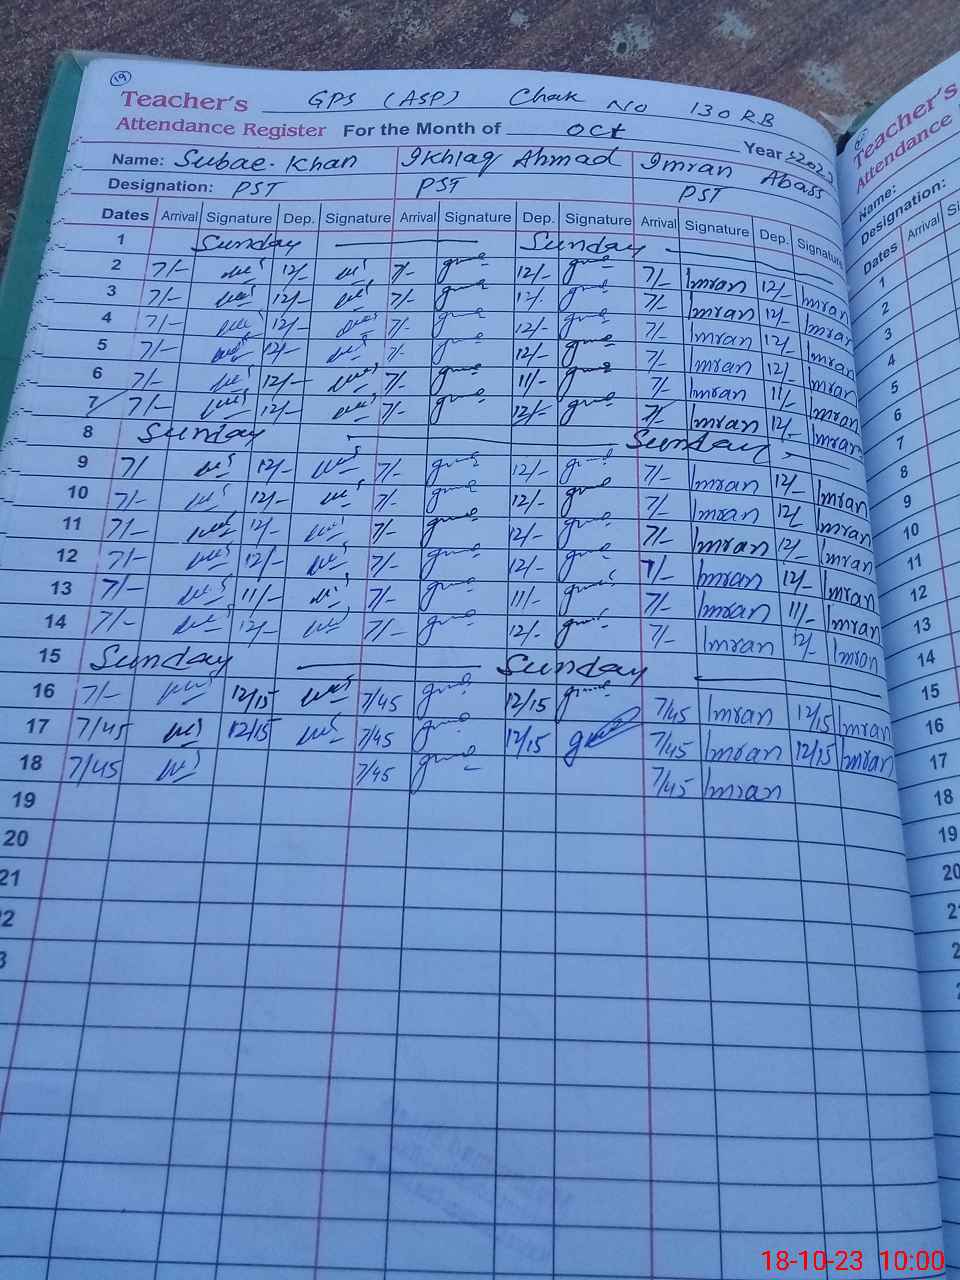 19
Teacher's GPS (ASP) Chak No 130 RB
Attendance Register For the Month of Oct Year 2023
Name: Subae. Khan Ikhlaq Ahmad Imran Abass
Designation: PST PST PST
Dates Arrival Signature Dep. Signature Arrival Signature Dep. Signature Arrival Signature Dep. Signature
1 Sunday Sunday
2 7/- 12/- 7/- 12/- 7/- Imran 12/- Imran
3 7/- 12/- 7/- 12/- 7/- Imran 12/- Imran
4 7/- 12/- 7/- 12/- 7/- Imran 12/- Imran
5 7/- 12/- 7/- 12/- 7/- Imran 12/- Imran
6 7/- 12/- 7/- 11/- 7/- Imran 11/- Imran
7 7/- 12/- 7/- 12/- 7/- Imran 12/- Imran
8 Sunday Sunday
9 7/ 12/- 7/- 12/- 7/- Imran 12/- Imran
10 7/- 12/- 7/- 12/- 7/- Imran 12/ Imran
11 7/- 12/- 7/- 12/- 7/- Imran 12/- Imran
12 7/- 12/- 7/- 12/- 7/- Imran 12/- Imran
13 7/- 11/- 7/- 11/- 7/- Imran 11/- Imran
14 7/- 12/- 7/- 12/- 7/- Imran 12/- Imran
15 Sunday Sunday
16 7/- 12/15 7/45 12/15 7/45 Imran 12/15 Imran
17 7/45 12/15 7/45 12/15 7/45 Imran 12/15 Imran
18 7/45 7/45 7/45 Imran
19
20
21
2
3
Teacher's
Attendance
Name:
Designation:
Dates Arrival
1
2
3
4
5
6
7
8
9
10
11
12
13
14
15
16
17
18
19
20
2
2
18-10-23 10:00